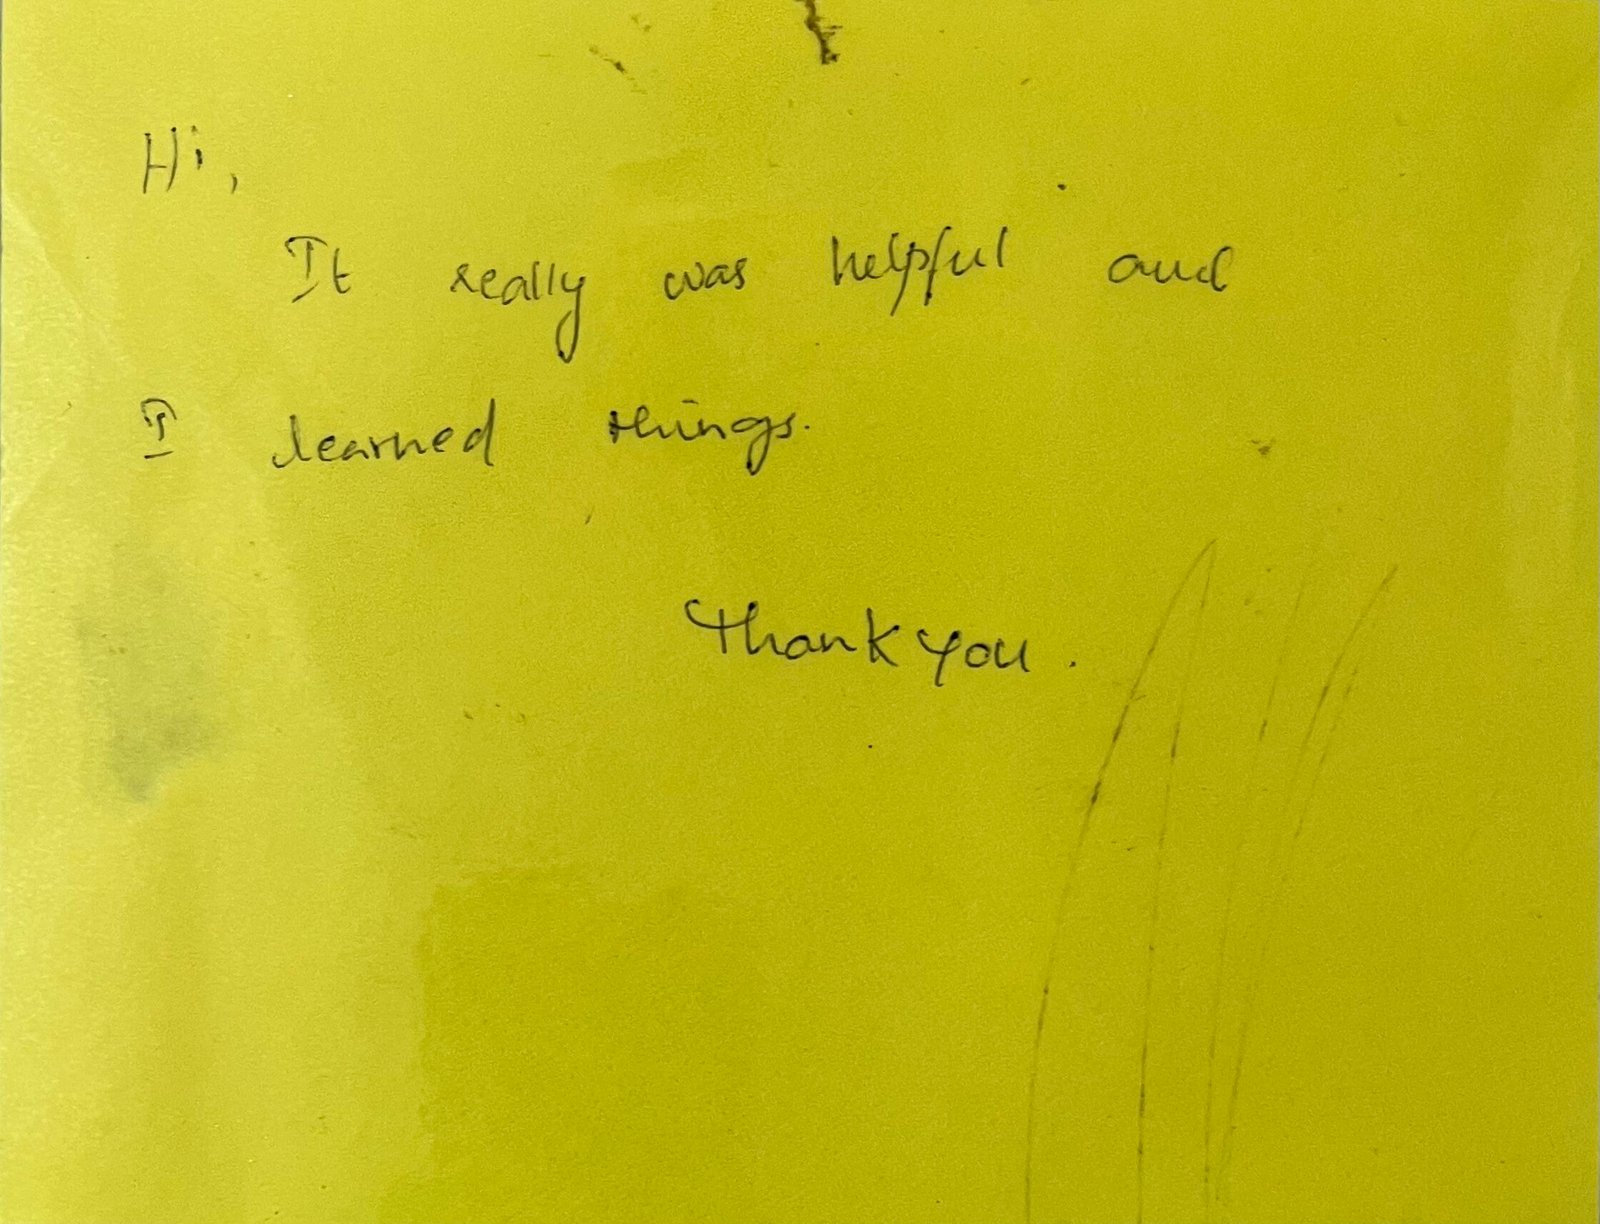 Hi,
It really was helpful and
I learned things.
Thank you.